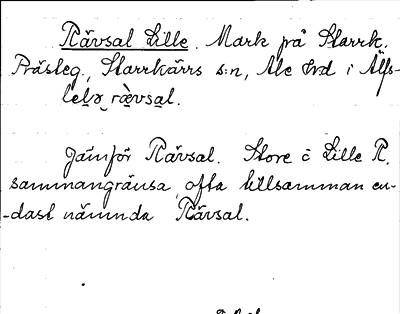 Rävsal Lille. Mark på Starrk.
Prästeg., Starrkärrs s:n, Ale hrd i Älfs-
rævsal.
Jämför Rävsal. Store o Lille R.
sammangränsa, ofta tillsamman en-
-dast nämnda Rävsal.